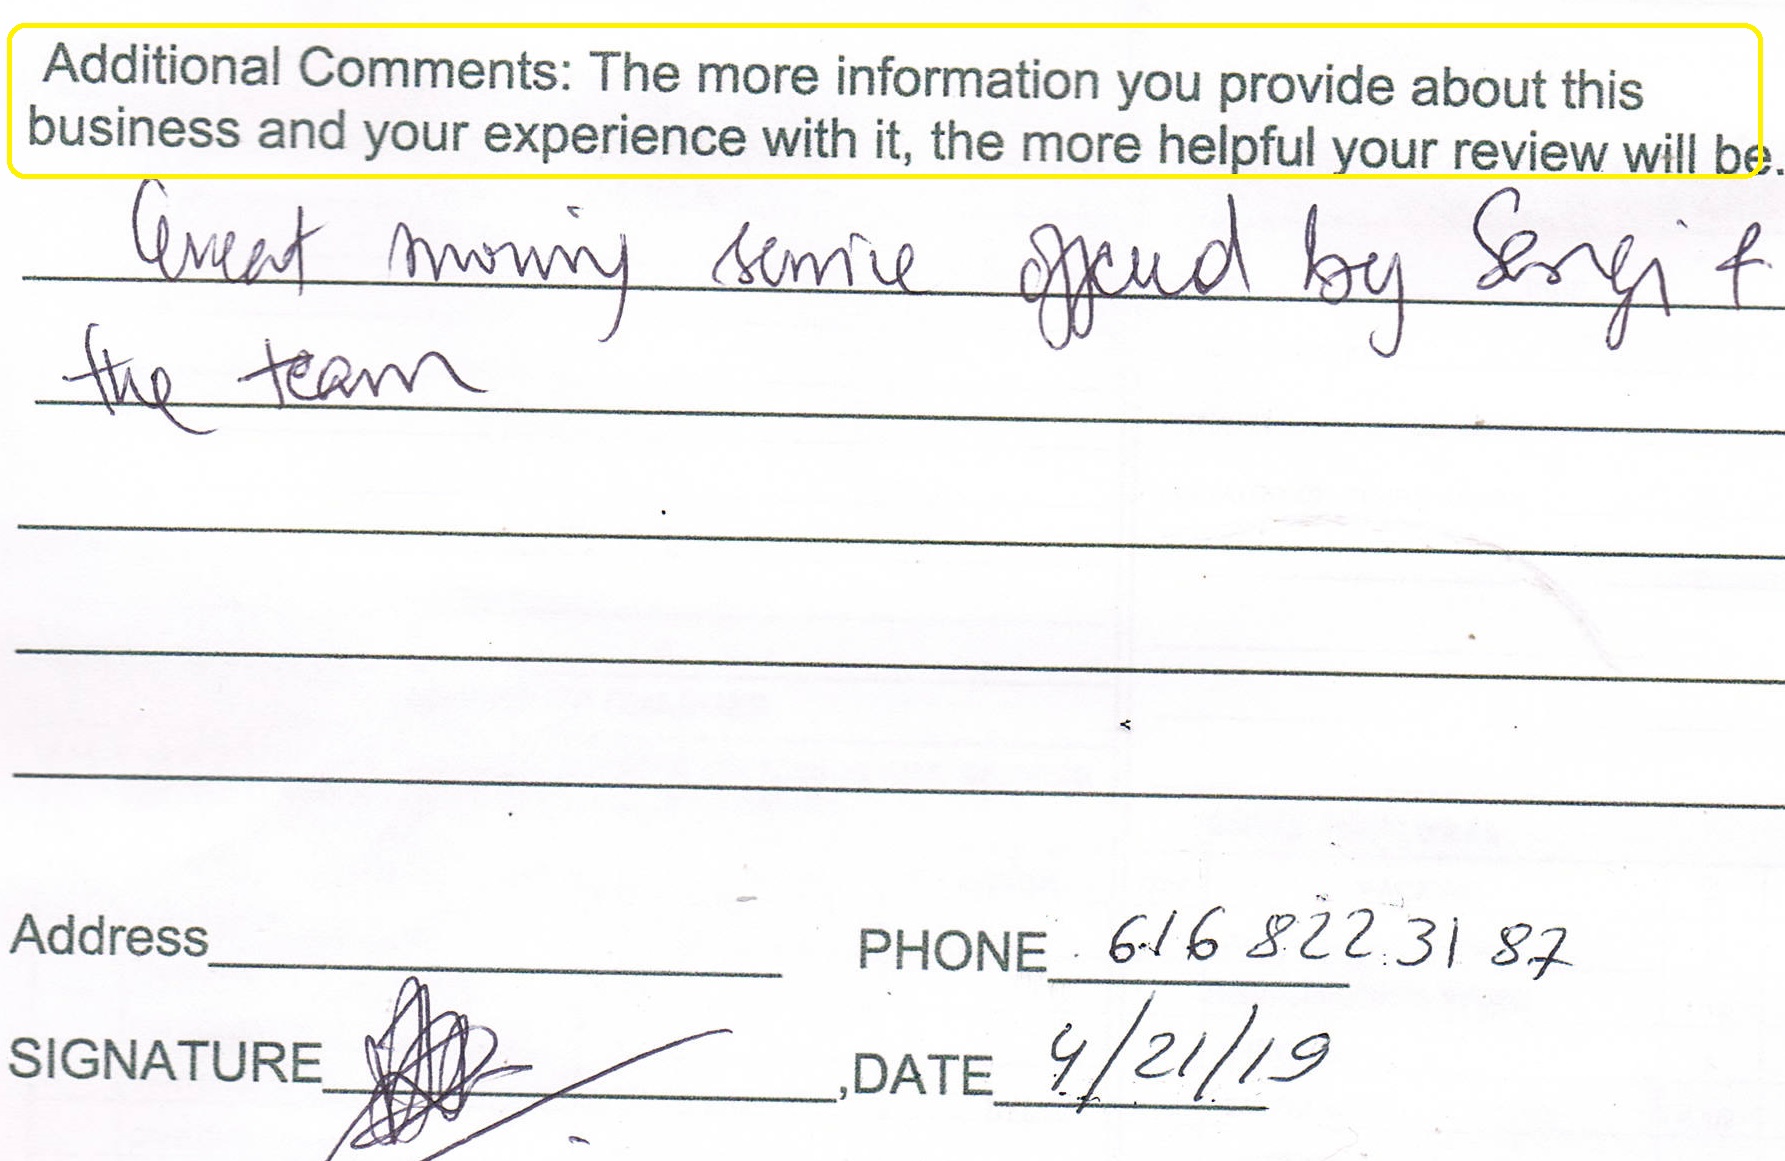 Additional Comments: The more information you provide about this
business and your experience with it, the more helpful your review will be.
Great moving service offered by Sergi &
the team
Address PHONE 616 822 31 87
SIGNATURE ,DATE 4/21/19